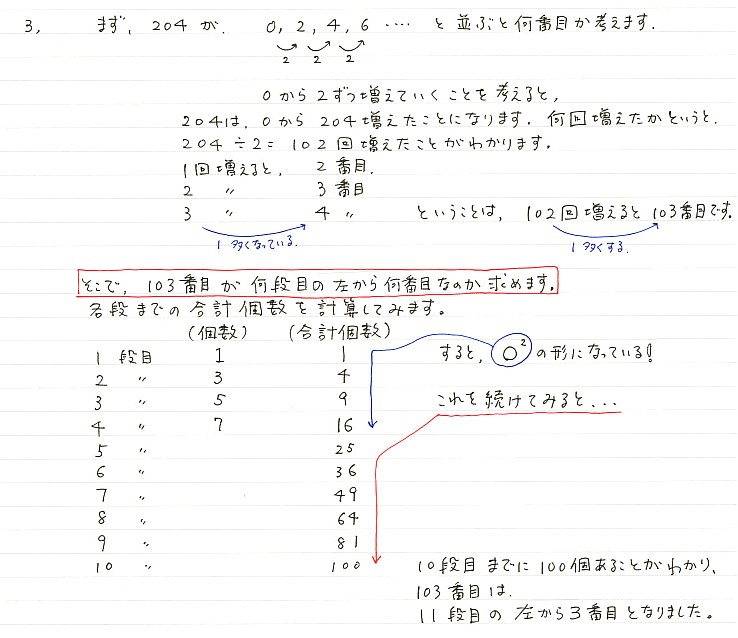 3, まず, 204 が. 0, 2, 4, 6 ‥‥ と並ぶと何番目か考えます.
2 2 2
0から2ずつ増えていくことを考えると,
204は, 0から204増えたことになります. 何回増えたかというと,
204÷2= 102回増えたことがわかります.
1回増えると, 2番目.
2 〃 3番目
3 〃 4 〃 ということは, 102回増えると103番目です.
1多くなっている. 1多くする.
そこで, 103番目が何段目の左から何番目なのか求めます.
各段までの合計個数を計算してみます。
(個数) (合計個数)
1段目 1 1 すると, ○²の形になっている!
2 〃 3 4
3 〃 5 9 これを続けてみると...
4 〃 7 16
5 〃 25
6 〃 36
7 〃 49
8 〃 64
9 〃 81
10 〃 100 10段目までに100個あることがわかり,
103番目は.
11段目の左から3番目となりました。